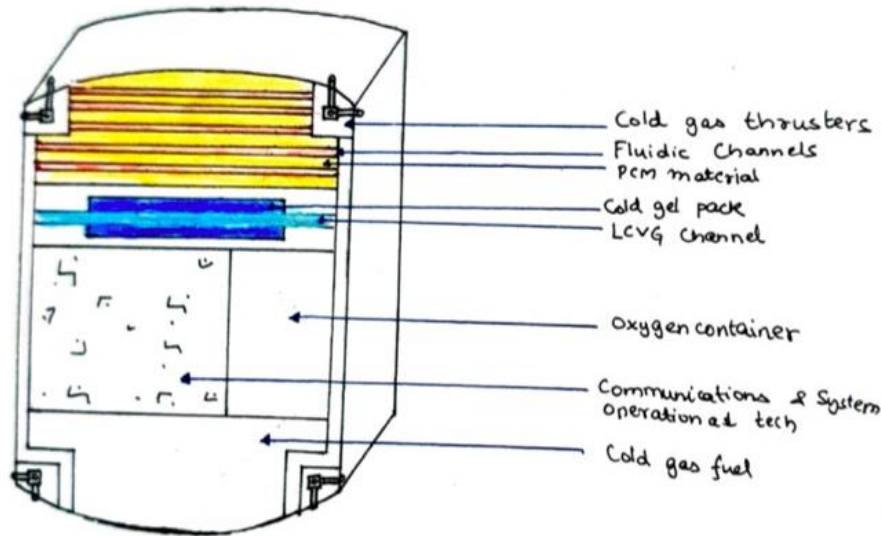 Cold gas thrusters
Fluidic Channels
PCM material
Cold gel pack
LCVG Channel
Oxygen container
Communications & System
operational tech
Cold gas fuel